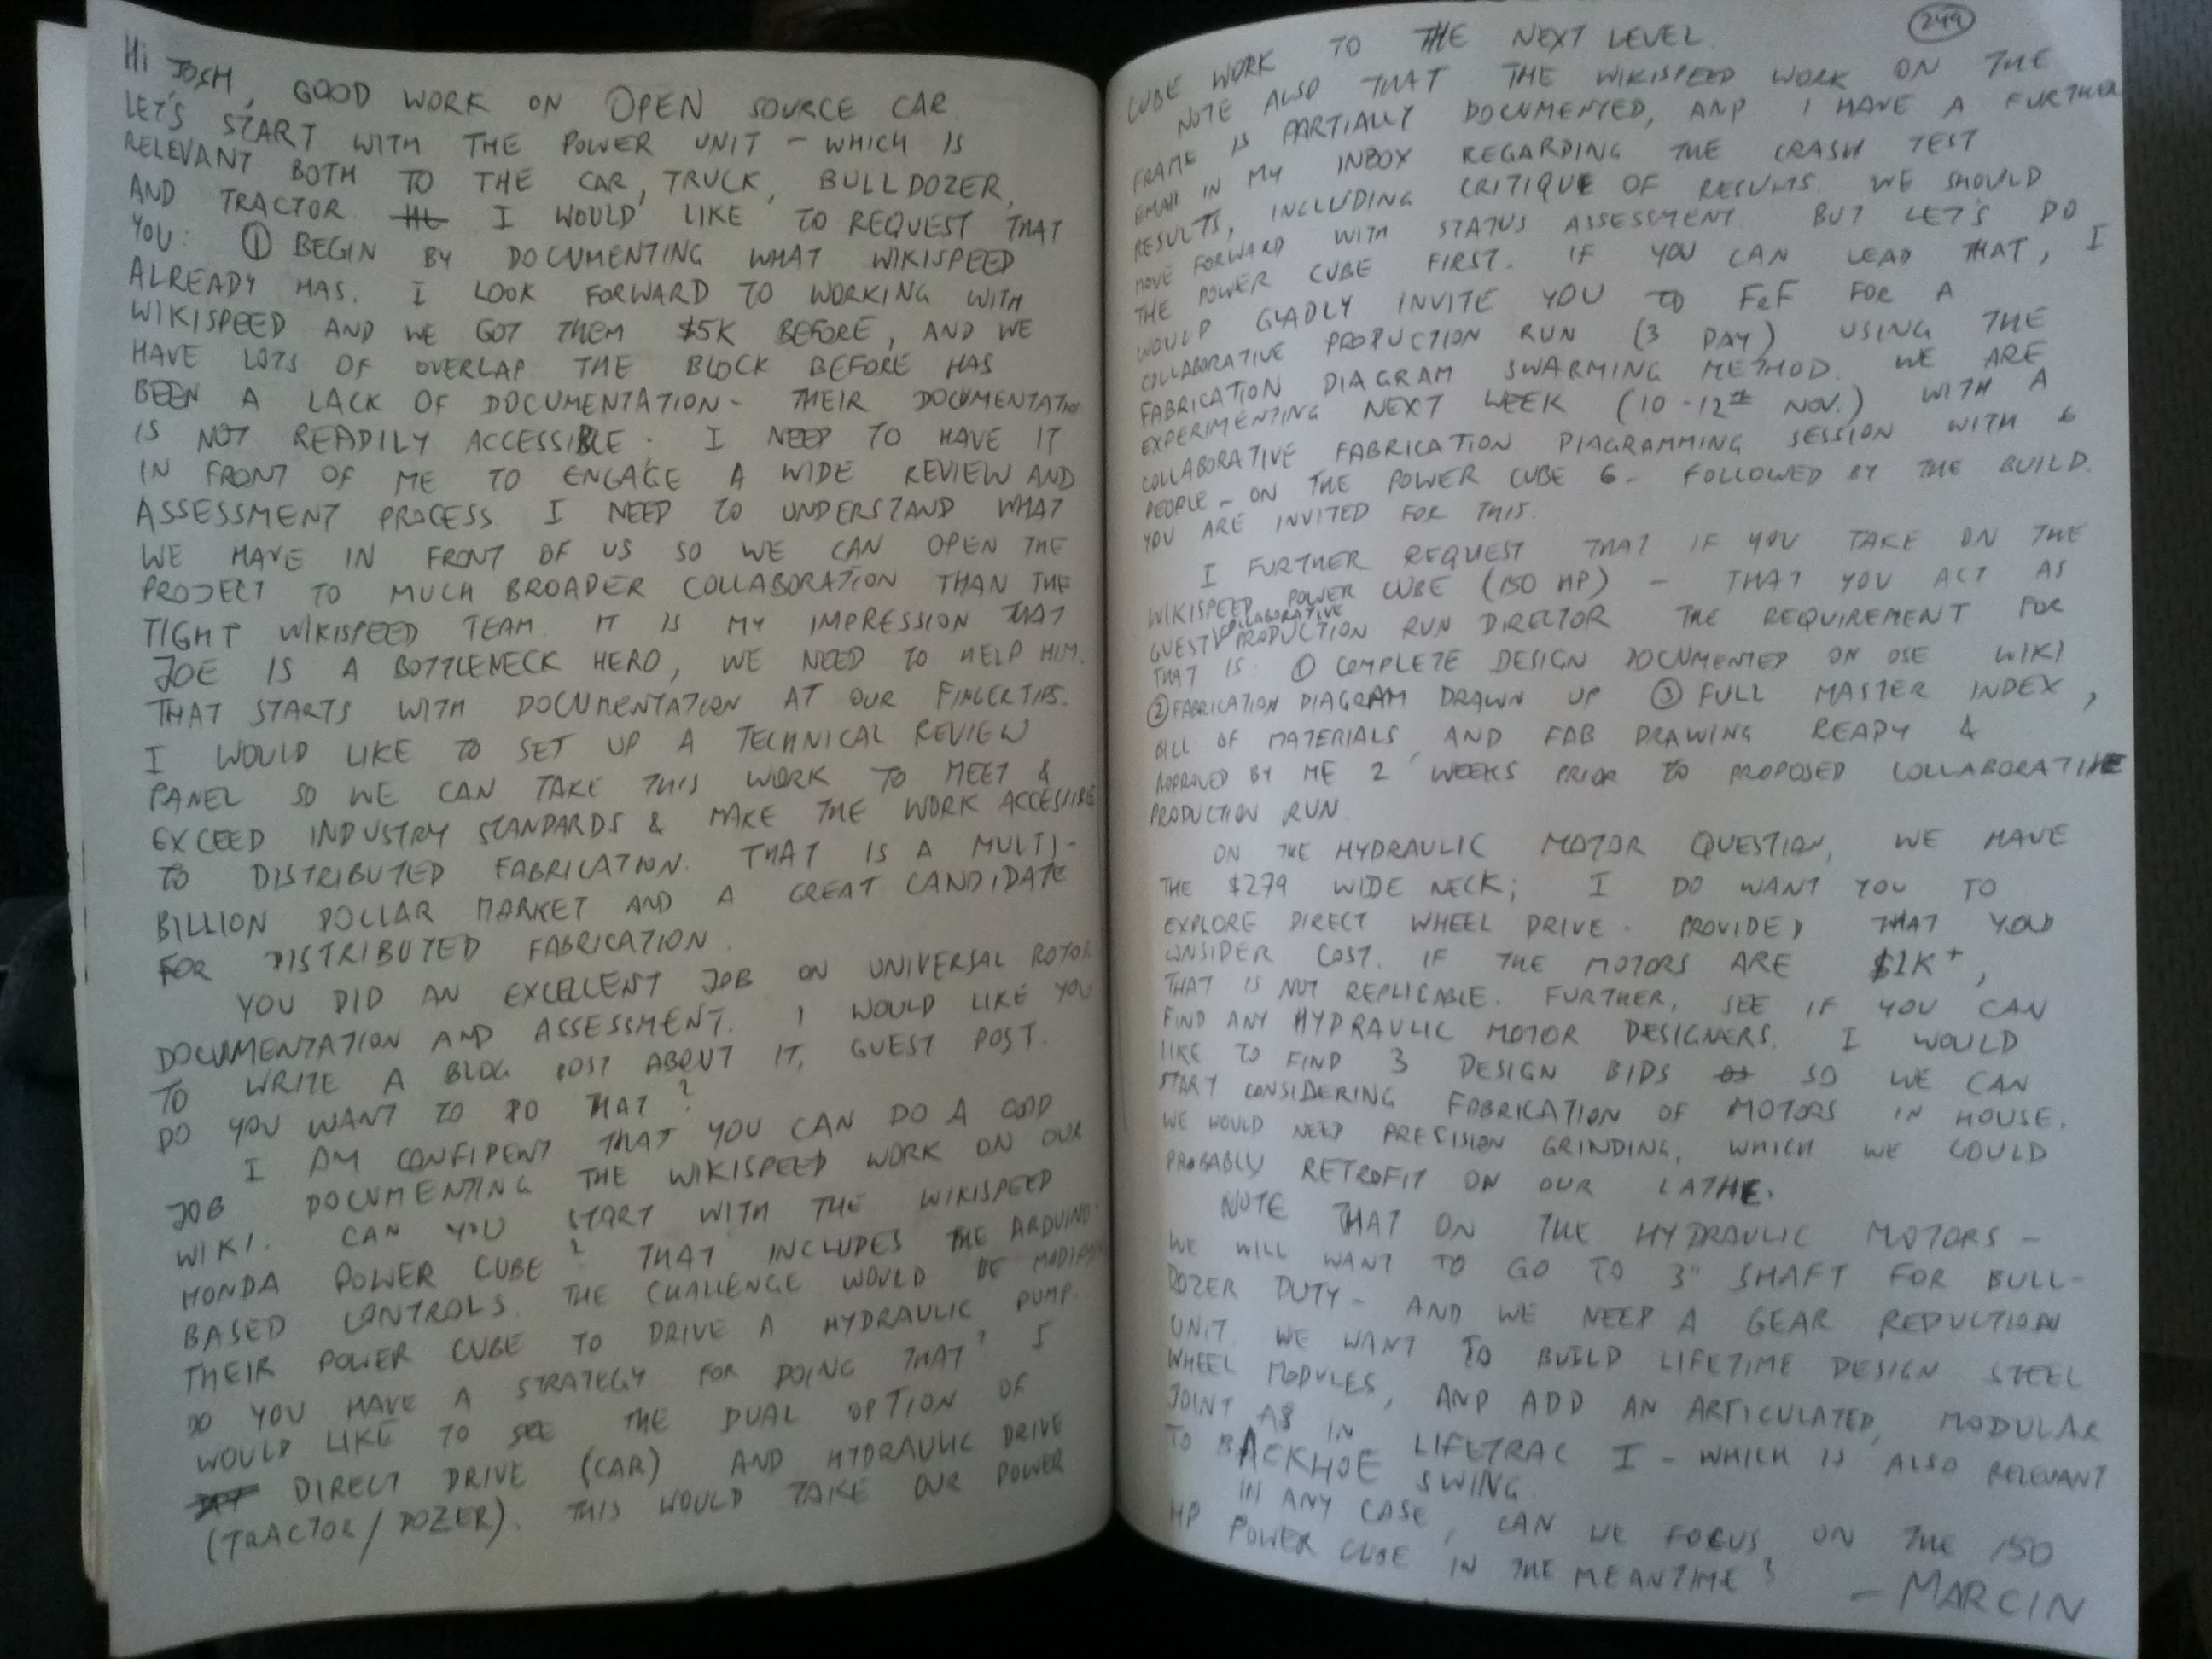 Hi JOSH, GOOD WORK ON OPEN SOURCE CAR.
LET'S START WITH THE POWER UNIT - WHICH IS
RELEVANT BOTH TO THE CAR, TRUCK, BULLDOZER,
AND TRACTOR. I WOULD LIKE TO REQUEST THAT
YOU: ① BEGIN BY DOCUMENTING WHAT WIKISPEED
ALREADY HAS. I LOOK FORWARD TO WORKING WITH
WIKISPEED AND WE GOT THEM $5K BEFORE, AND WE
HAVE LOTS OF OVERLAP. THE BLOCK BEFORE HAS
BEEN A LACK OF DOCUMENTATION - THEIR DOCUMENTATION
IS NOT READILY ACCESSIBLE. I NEED TO HAVE IT
IN FRONT OF ME TO ENGAGE A WIDE REVIEW AND
ASSESSMENT PROCESS I NEED TO UNDERSTAND WHAT
WE HAVE IN FRONT OF US SO WE CAN OPEN THE
PROJECT TO MUCH BROADER COLLABORATION THAN THE
TIGHT WIKISPEED TEAM. IT IS MY IMPRESSION THAT
JOE IS A BOTTLENECK HERO, WE NEED TO HELP HIM.
THAT STARTS WITH DOCUMENTATION AT OUR FINGERTIPS.
I WOULD LIKE TO SET UP A TECHNICAL REVIEW
PANEL SO WE CAN TAKE THIS WORK TO MEET &
EXCEED INDUSTRY STANDARDS & MAKE THE WORK ACCESSIBLE
TO DISTRIBUTED FABRICATION. THAT IS A MULTI-
BILLION DOLLAR MARKET AND A GREAT CANDIDATE
FOR DISTRIBUTED FABRICATION.
YOU DID AN EXCELLENT JOB ON UNIVERSAL ROTOR
DOCUMENTATION AND ASSESSMENT. I WOULD LIKE YOU
TO WRITE A BLOG POST ABOUT IT, GUEST POST.
DO YOU WANT TO DO THAT?
I AM CONFIDENT THAT YOU CAN DO A GOOD
JOB DOCUMENTING THE WIKISPEED WORK ON OUR
WIKI. CAN YOU START WITH THE WIKISPEED
HONDA POWER CUBE? THAT INCLUDES THE ARDUINO-
BASED CONTROLS. THE CHALLENGE WOULD BE MODIFYING
THEIR POWER CUBE TO DRIVE A HYDRAULIC PUMP.
DO YOU HAVE A STRATEGY FOR DOING THAT? I
WOULD LIKE TO SEE THE DUAL OPTION OF
DIRECT DRIVE (CAR) AND HYDRAULIC DRIVE
(TRACTOR/DOZER). THIS WOULD TAKE OUR POWER
249
CUBE WORK TO THE NEXT LEVEL.
NOTE ALSO THAT THE WIKISPEED WORK ON THE
FRAME IS PARTIALLY DOCUMENTED, AND I HAVE A FURTHER
EMAIL IN MY INBOX REGARDING THE CRASH TEST
RESULTS, INCLUDING CRITIQUE OF RESULTS. WE SHOULD
MOVE FORWARD WITH STATUS ASSESSMENT. BUT LET'S DO
THE POWER CUBE FIRST. IF YOU CAN LEAD THAT, I
WOULD GLADLY INVITE YOU TO FeF FOR A
COLLABORATIVE PRODUCTION RUN (3 DAY) USING THE
FABRICATION DIAGRAM SWARMING METHOD. WE ARE
EXPERIMENTING NEXT WEEK (10-12th NOV.) WITH A
COLLABORATIVE FABRICATION DIAGRAMMING SESSION WITH 6
PEOPLE - ON THE POWER CUBE 6 - FOLLOWED BY THE BUILD.
YOU ARE INVITED FOR THIS.
I FURTHER REQUEST THAT IF YOU TAKE ON THE
WIKISPEED POWER CUBE (150 HP) - THAT YOU ACT AS
GUEST COLLABORATIVE PRODUCTION RUN DIRECTOR THE REQUIREMENT FOR
THAT IS ① COMPLETE DESIGN DOCUMENTED ON OSE WIKI
② FABRICATION DIAGRAM DRAWN UP ③ FULL MASTER INDEX,
BILL OF MATERIALS, AND FAB DRAWING READY &
APPROVED BY ME 2 WEEKS PRIOR TO PROPOSED COLLABORATIVE
PRODUCTION RUN.
ON THE HYDRAULIC MOTOR QUESTION, WE HAVE
THE $279 WIDE NECK; I DO WANT YOU TO
EXPLORE DIRECT WHEEL DRIVE. PROVIDED THAT YOU
CONSIDER COST. IF THE MOTORS ARE $1K+,
THAT IS NOT REPLICABLE. FURTHER, SEE IF YOU CAN
FIND ANY HYDRAULIC MOTOR DESIGNERS. I WOULD
LIKE TO FIND 3 DESIGN BIDS SO WE CAN
START CONSIDERING FABRICATION OF MOTORS IN HOUSE.
WE WOULD NEED PRECISION GRINDING, WHICH WE COULD
PROBABLY RETROFIT ON OUR LATHE.
NOTE THAT ON THE HYDRAULIC MOTORS -
WE WILL WANT TO GO TO 3" SHAFT FOR BULL-
DOZER DUTY - AND WE NEED A GEAR REDUCTION
UNIT. WE WANT TO BUILD LIFETIME DESIGN STEEL
WHEEL MODULES, AND ADD AN ARTICULATED, MODULAR
JOINT AS IN LIFETRAC I - WHICH IS ALSO RELEVANT
TO BACKHOE SWING.
IN ANY CASE, CAN WE FOCUS ON THE 150
HP POWER CUBE IN THE MEANTIME?
- MARCIN